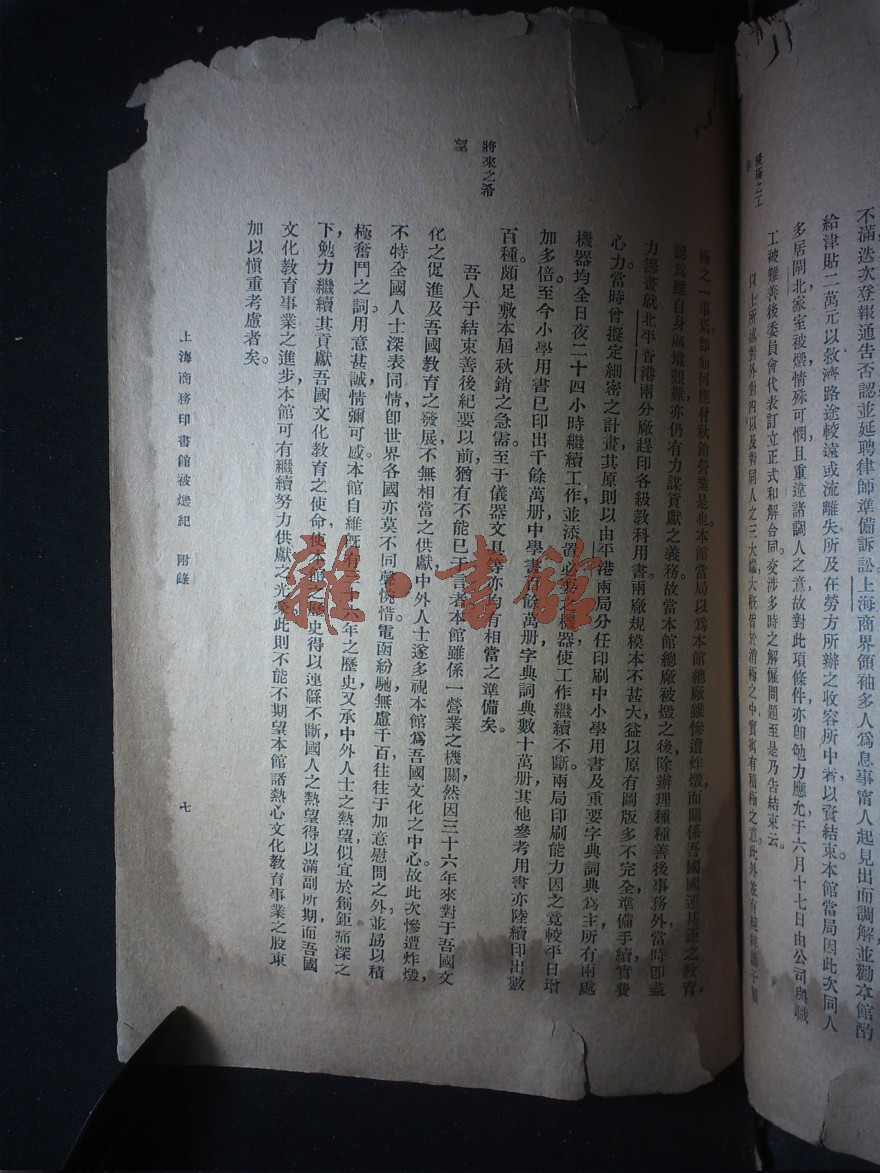 積極之工
不滿迭次登報通告否認並延聘律師準備訴訟上海商界領袖多人爲息事甯人起見出面調解並勸本館酌
給津貼二萬元以救濟路途較遠或流離失所及在勞方所辦之收容所中者以資結束本館當局因此次同人
多居閘北家室被燬情殊可憫且重違諸調人之意故對此項條件亦卽勉力應允于六月十七日由公司與職
工被難善後委員會代表訂立正式和解合同。交涉多時之解僱問題至是乃告結束云。
以上所述對外對內以及對同人之三大端大概皆於消極之中實寓有積極之道此外並有
極之一事焉卽如何應付秋銷營業是也。本館當局以爲本館總廠雖慘遭炸燬而關係吾國國運甚鉅之教育,
認爲雖自身處境艱難亦仍有力謀貢獻之義務。故當本館總廠被燬之後除辦理種種善後事務外當時卽盡
力謀畫就北平香港兩分廠趕印各級教科用書。兩廠規模本不甚大益以原有圖版多不完全準備手續實費
心力當時曾擬定細密之計畫其原則以由平港兩局分任印刷中小學用書及重要字典詞典爲主所有兩處
機器均全日夜二十四小時繼續工作並添置必要之機器使工作繼續不斷。兩局印刷能力因之竟較平日增
加多倍至今小學用書已印出千餘萬册中學書百餘萬册字典詞典數十萬册其他參考用書亦陸續印出數
百種。頗足敷本屆秋銷之急需至于儀器文具等亦均有相當之準備矣。
將來之希
望
吾人于結束善後紀要以前猶有不能已于言者本館雖係一營業之機關然因三十六年來對于吾國文
化之促進及吾國教育之發展,不無相當之供獻中外人士遂多視本館爲吾國文化之中心。故此次慘遭炸燬,
不特全國人士深表同情卽世界各國亦莫不同聲惋惜。電函紛馳無慮千百往往于加意慰問之外並勗以積
極奮鬥之詞。用意甚誠,情彌可感。本館自維既有三十六年之歷史又承中外人士之熱望似宜於創鉅痛深之
下,勉力繼續其貢獻吾國文化教育之使命使本館之歷史得以連緜不斷,國人之熱望得以滿副所期,而吾國
文化教育事業之進步,本館可有繼續努力供獻之光榮此則不能不期望本館諸熱心文化教育事業之股東
加以愼重考慮者矣。
上海商務印書館被燬紀 附錄
七
雜·書館